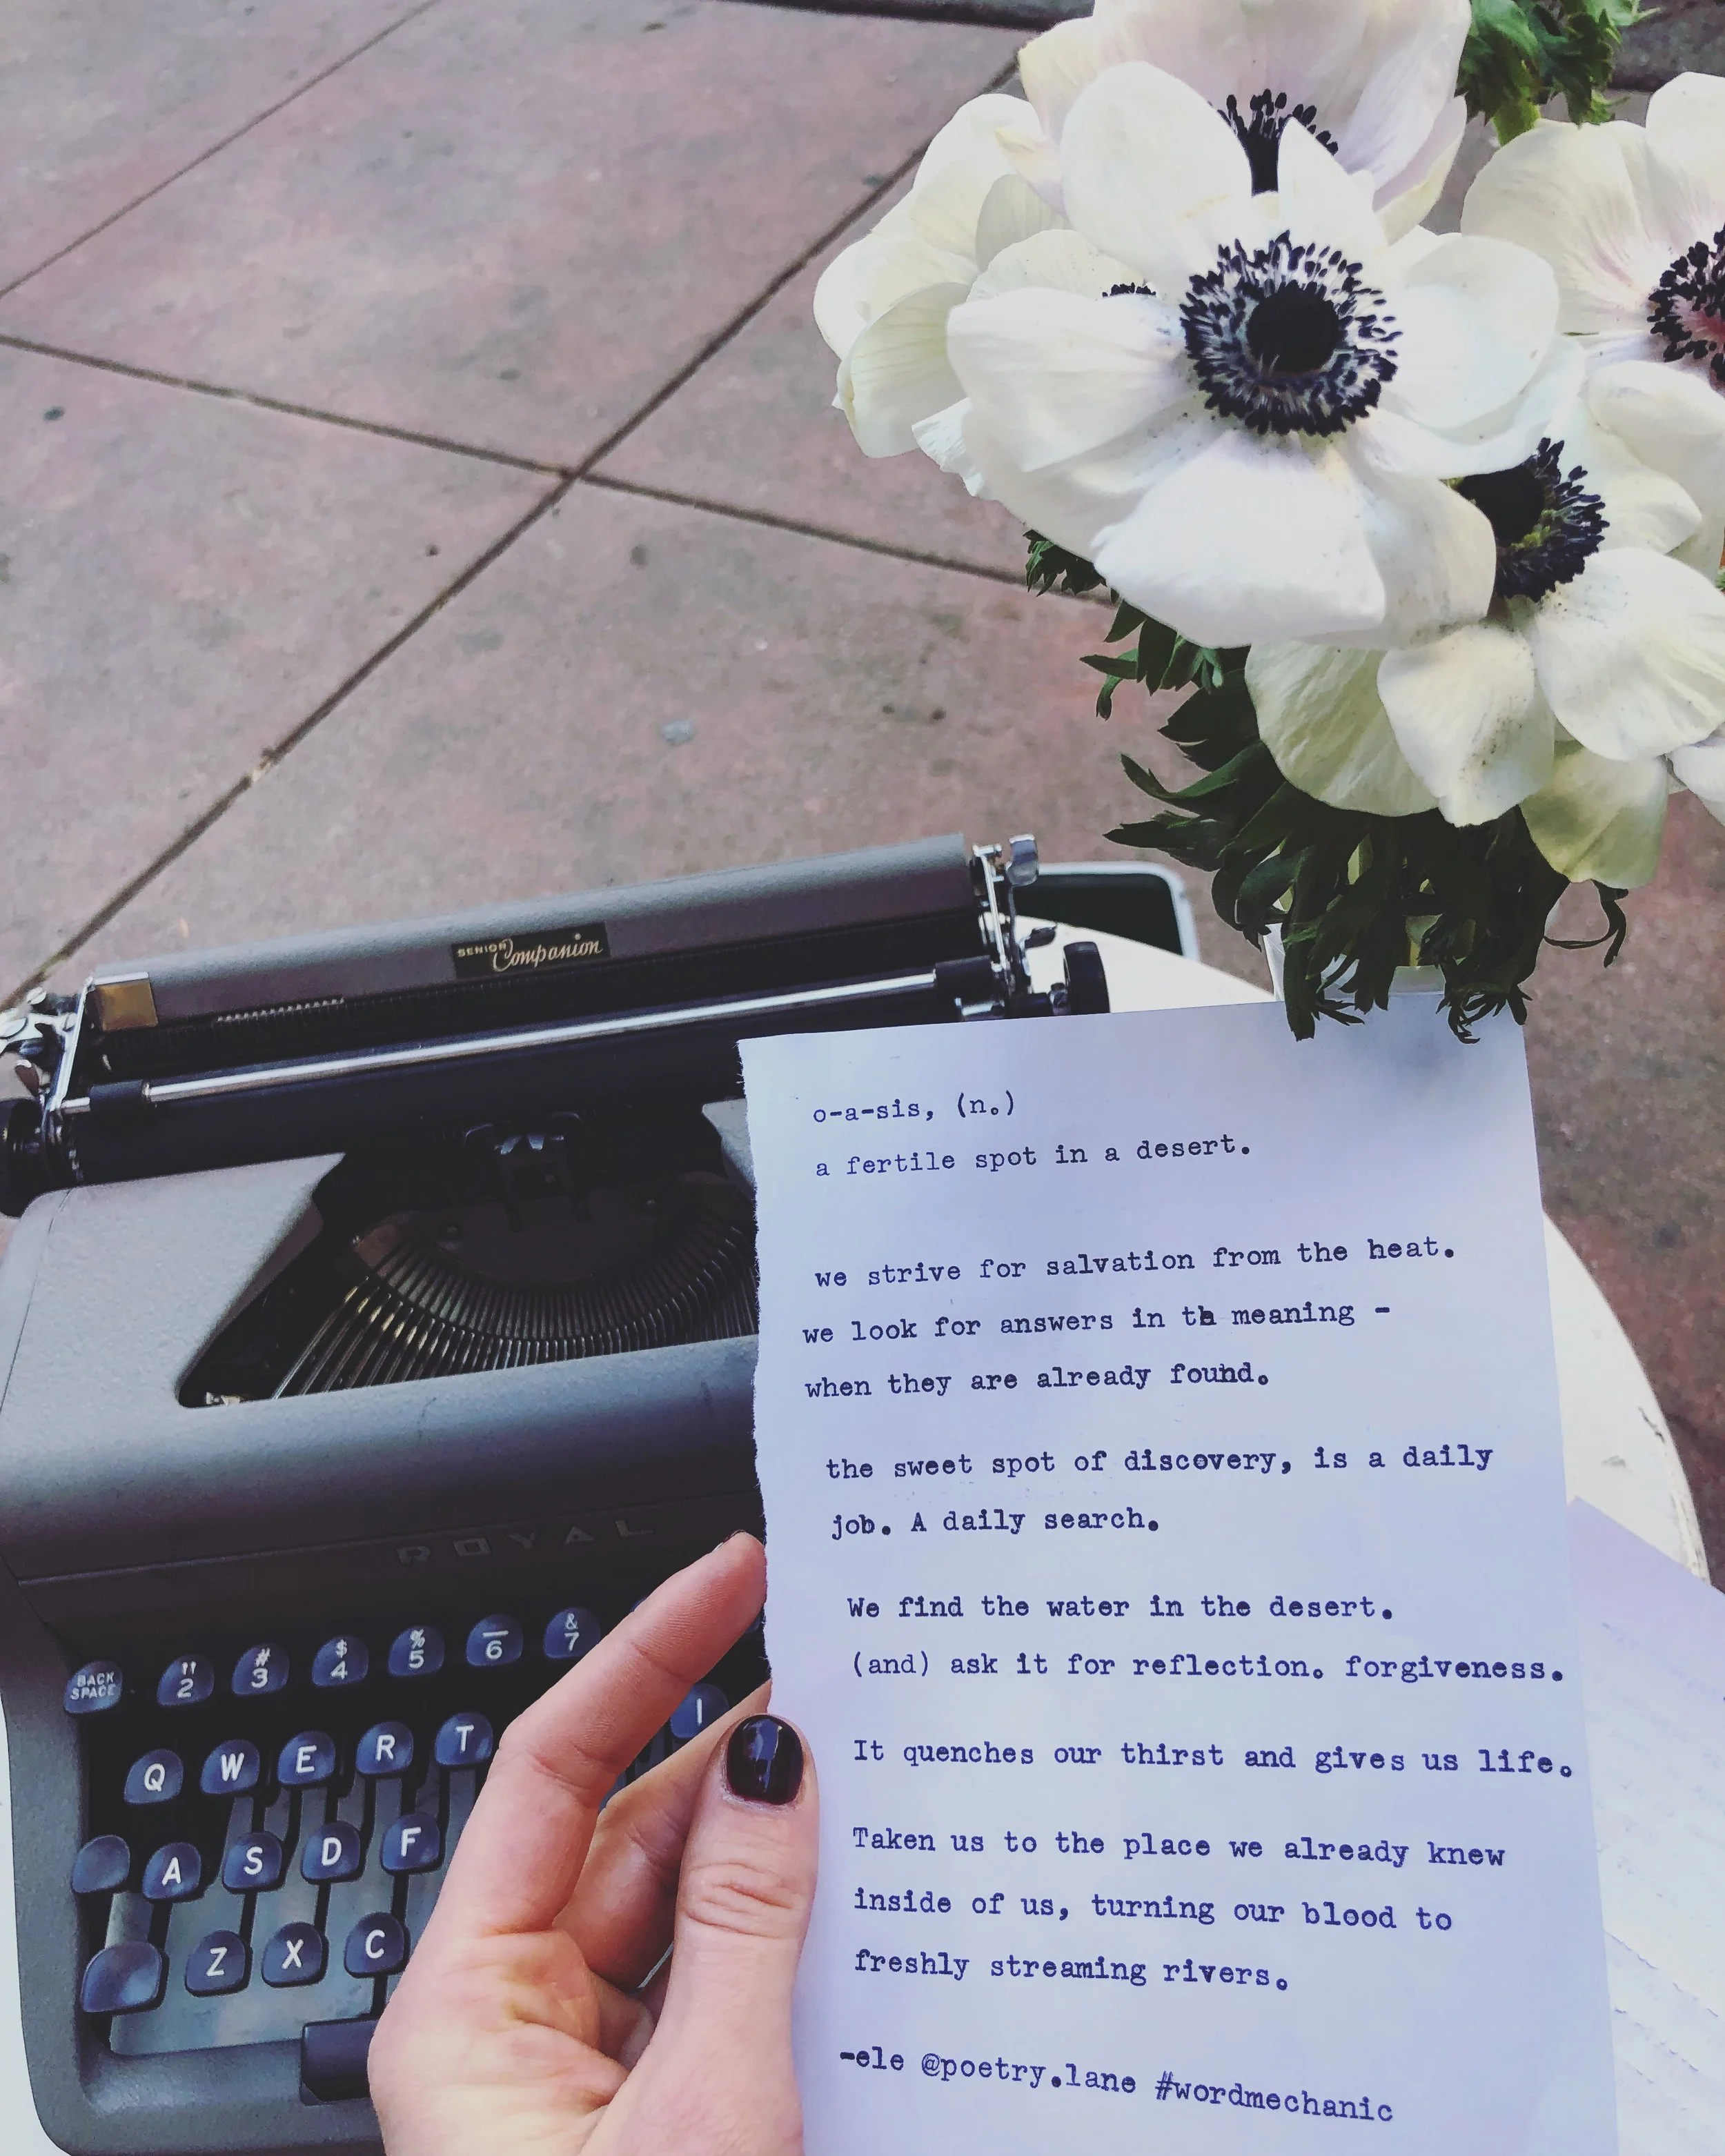 SENIOR Companion
o-a-sis, (n.)
a fertile spot in a desert.
we strive for salvation from the heat.
we look for answers in th meaning -
when they are already found.
the sweet spot of discovery, is a daily
job. A daily search.
We find the water in the desert.
(and) ask it for reflection. forgiveness.
It quenches our thirst and gives us life.
Taken us to the place we already knew
inside of us, turning our blood to
freshly streaming rivers.
-ele @poetry.lane #wordmechanic
ROYAL
BACK SPACE " 2 # 3 $ 4 % 5 _ 6 & 7
Q W E R T I
A S D F
Z X C